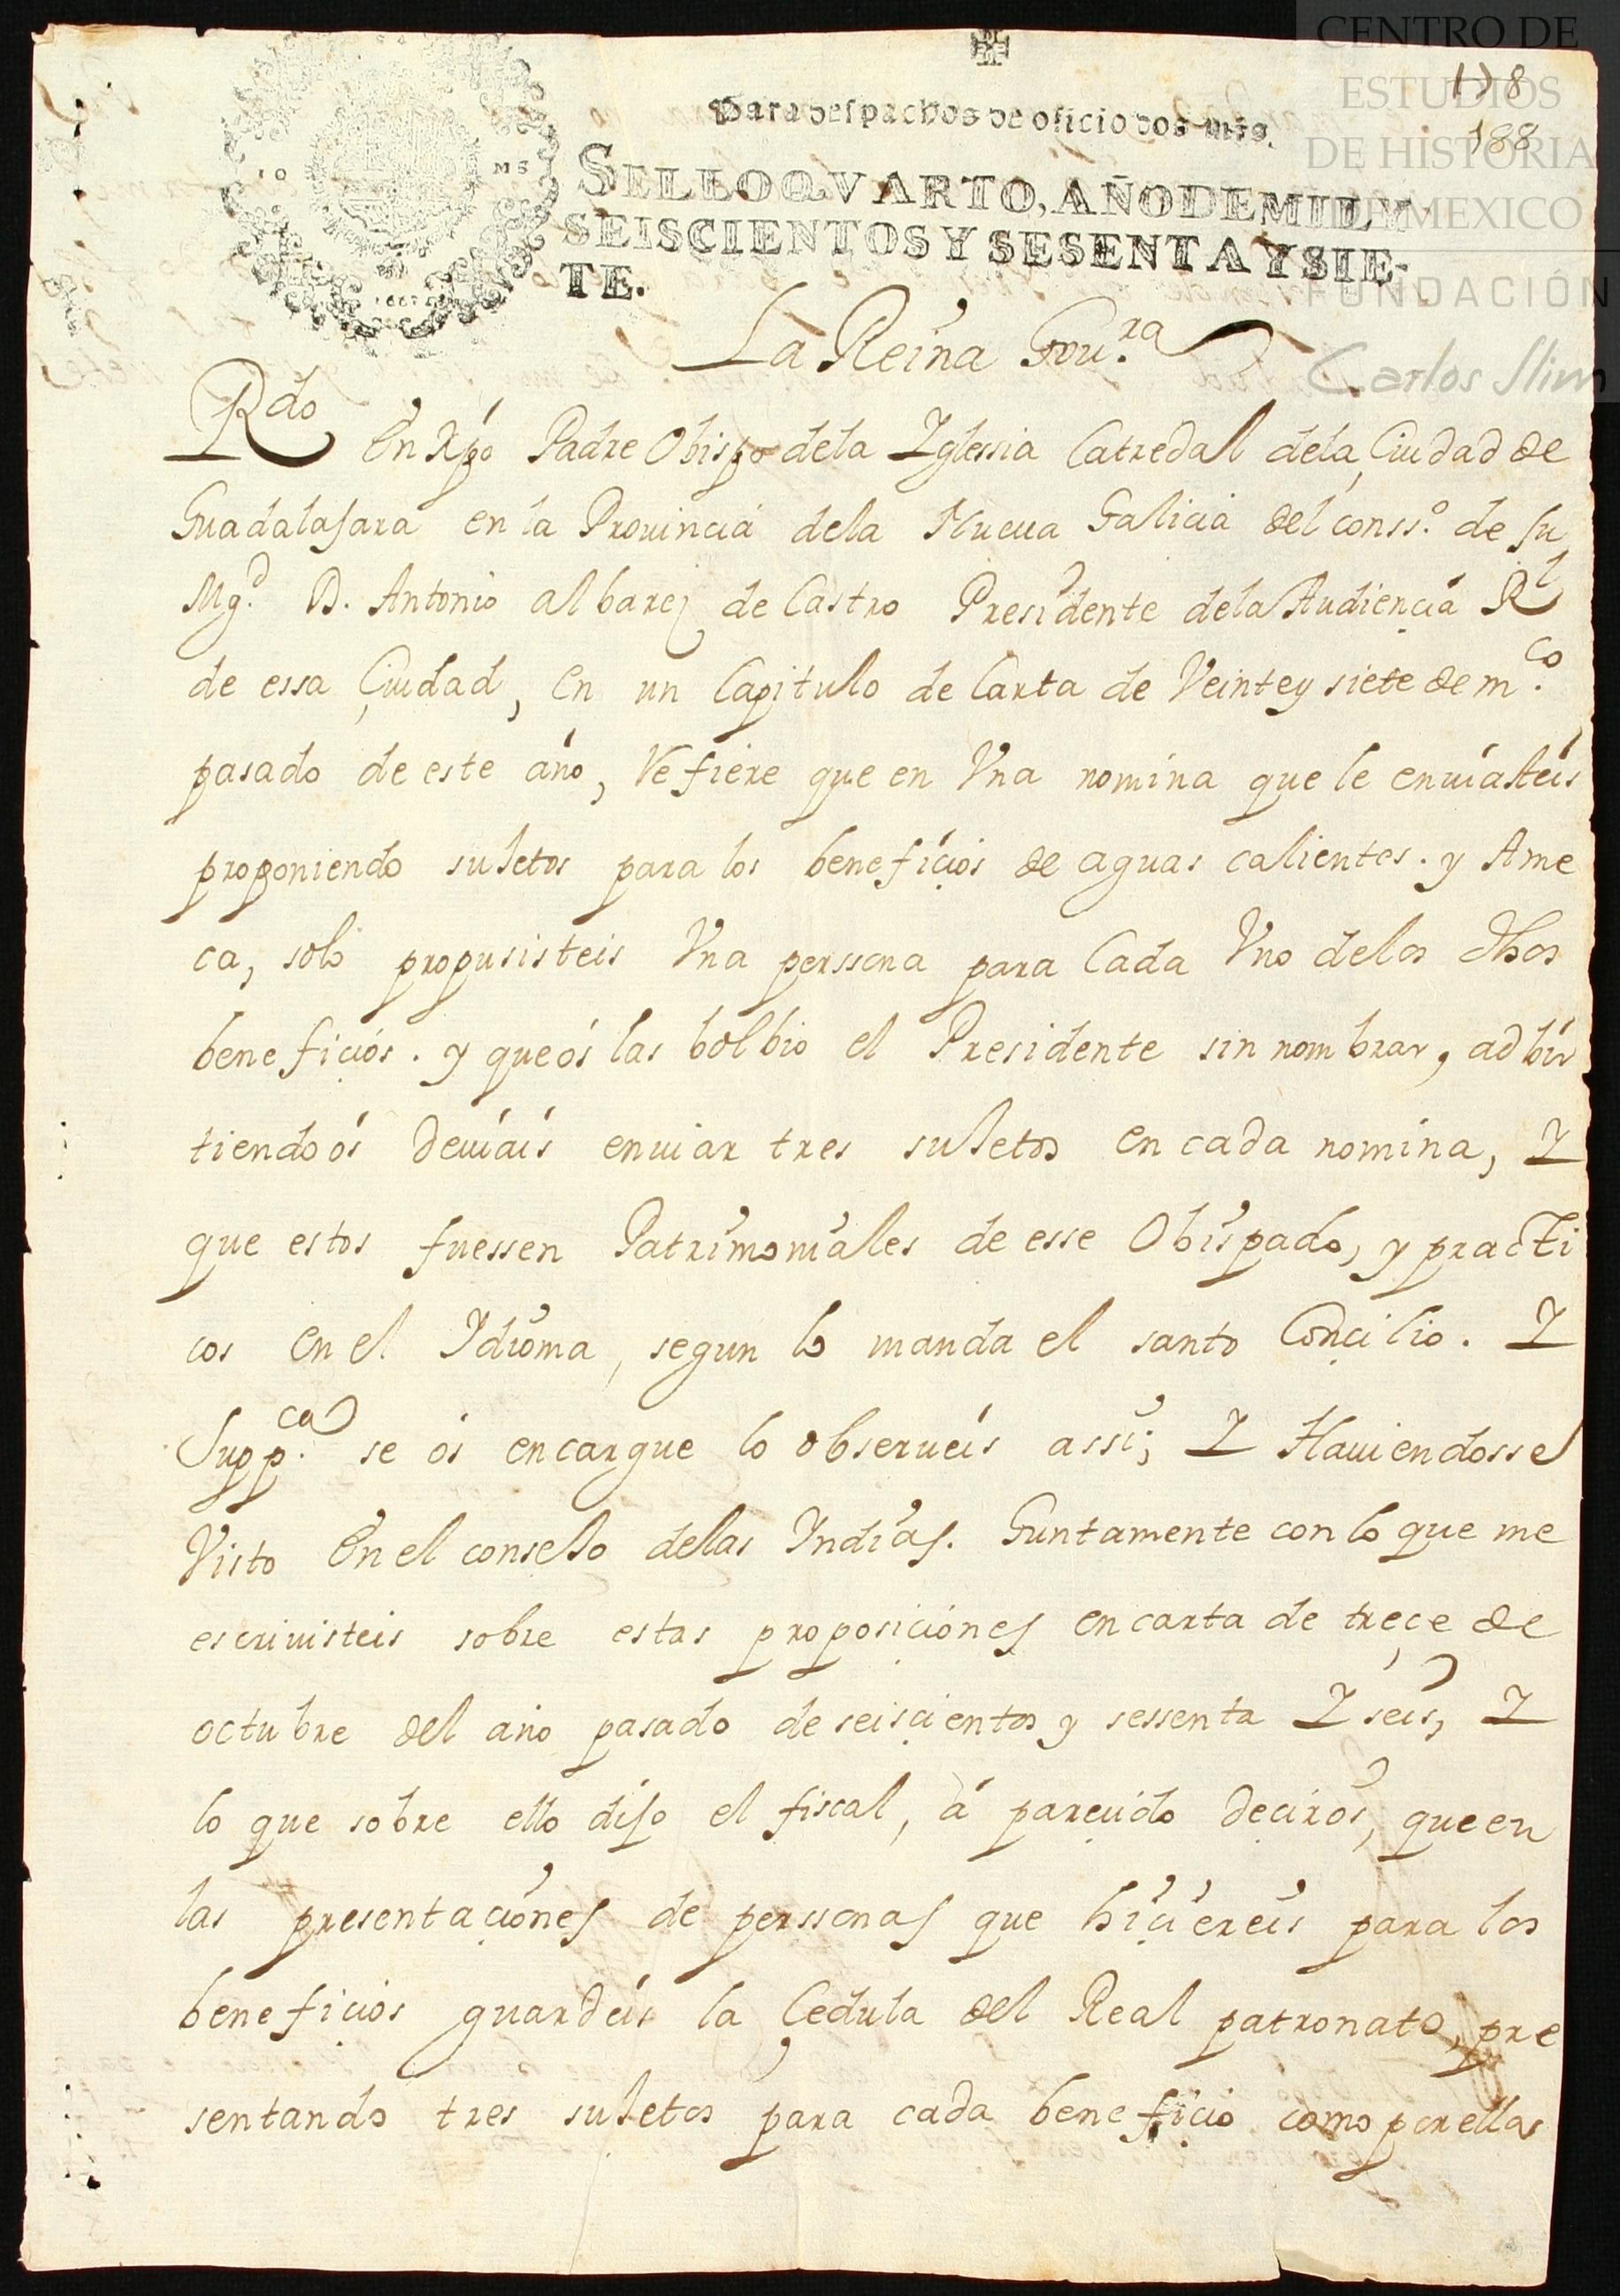 CENTRO DE
ESTUDIOS
DE HISTORIA
DE MEXICO
FUNDACIÓN
Carlos Slim
188
Para despachos de oficio dos mrs.
SELLO QVARTO, AÑO DE MIL Y
SEISCIENTOS Y SESENTA Y SIE-
TE.
La Reina Gou.ra
Rdo En Xpo Padre Obispo dela Iglessia Catredal dela Ciudad de
Guadalajara en la Prouincia dela Nueua Galicia del conss.o de su
Mg.d D. Antonio albarez de Castro Presidente dela Audiençia Rl
de essa Çiudad, en un Capitulo de Carta de Veinte y siete de m.co
pasado de este año, Refiere que en Vna nomina que le enuiasteis
proponiendo sujetos para los benefiçios de aguas calientes. y Ame
ca, solo propusisteis Vna perssona para Cada Vno delos dhos
benefiçios. y que os las bolbio el Presidente sin nombrar, adbir
tiendo os deuiais enuiar tres sujetos en cada nomina, Y
que estos fuessen Patrimoniales de esse Obispado, y practi
cos en el Idioma, segun lo manda el santo Conçilio. Y
Supp.ca se os encargue lo obserueis assi; Y Hauiendosse
Visto En el consejo delas Indias. Guntamente con lo que me
escriuisteis sobre estas proposiçiones en carta de treçe de
octubre del año pasado de seisçientos y sessenta Y seis, Y
lo que sobre ello dijo el fiscal, á pareçido deçiros, que en
las presentaçiones de perssonas que hiçiereis para los
benefiçios guardeis la Çedula del Real patronato, pre
sentando tres sujetos para cada benefiçio como por ellas